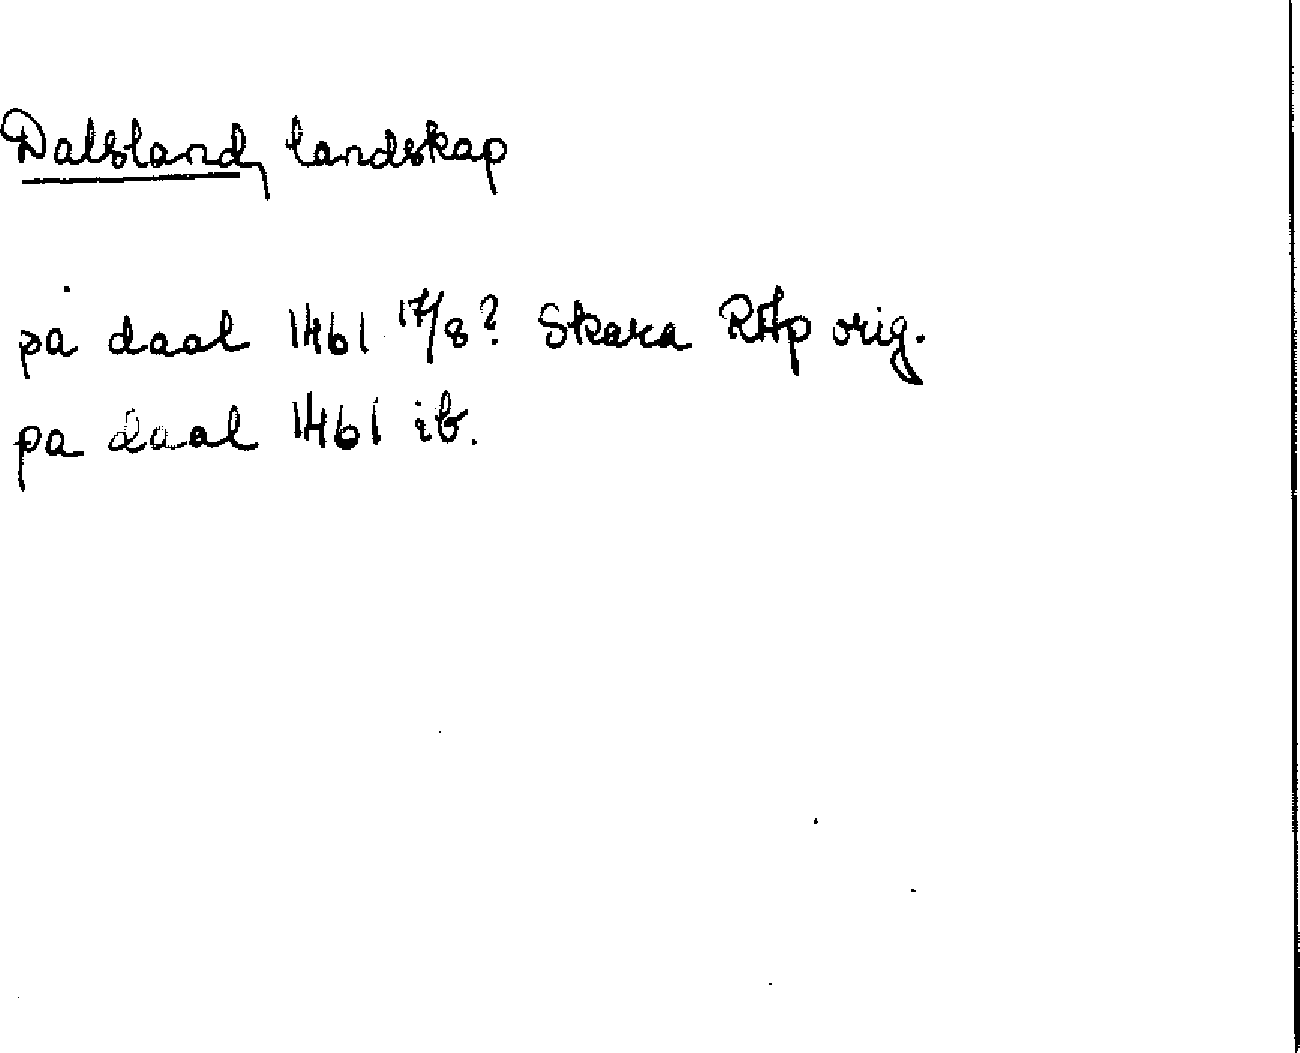 Dalsland, landskap
på daal 1461 17/8? Skara RAp orig.
pa daal 1461 ib.